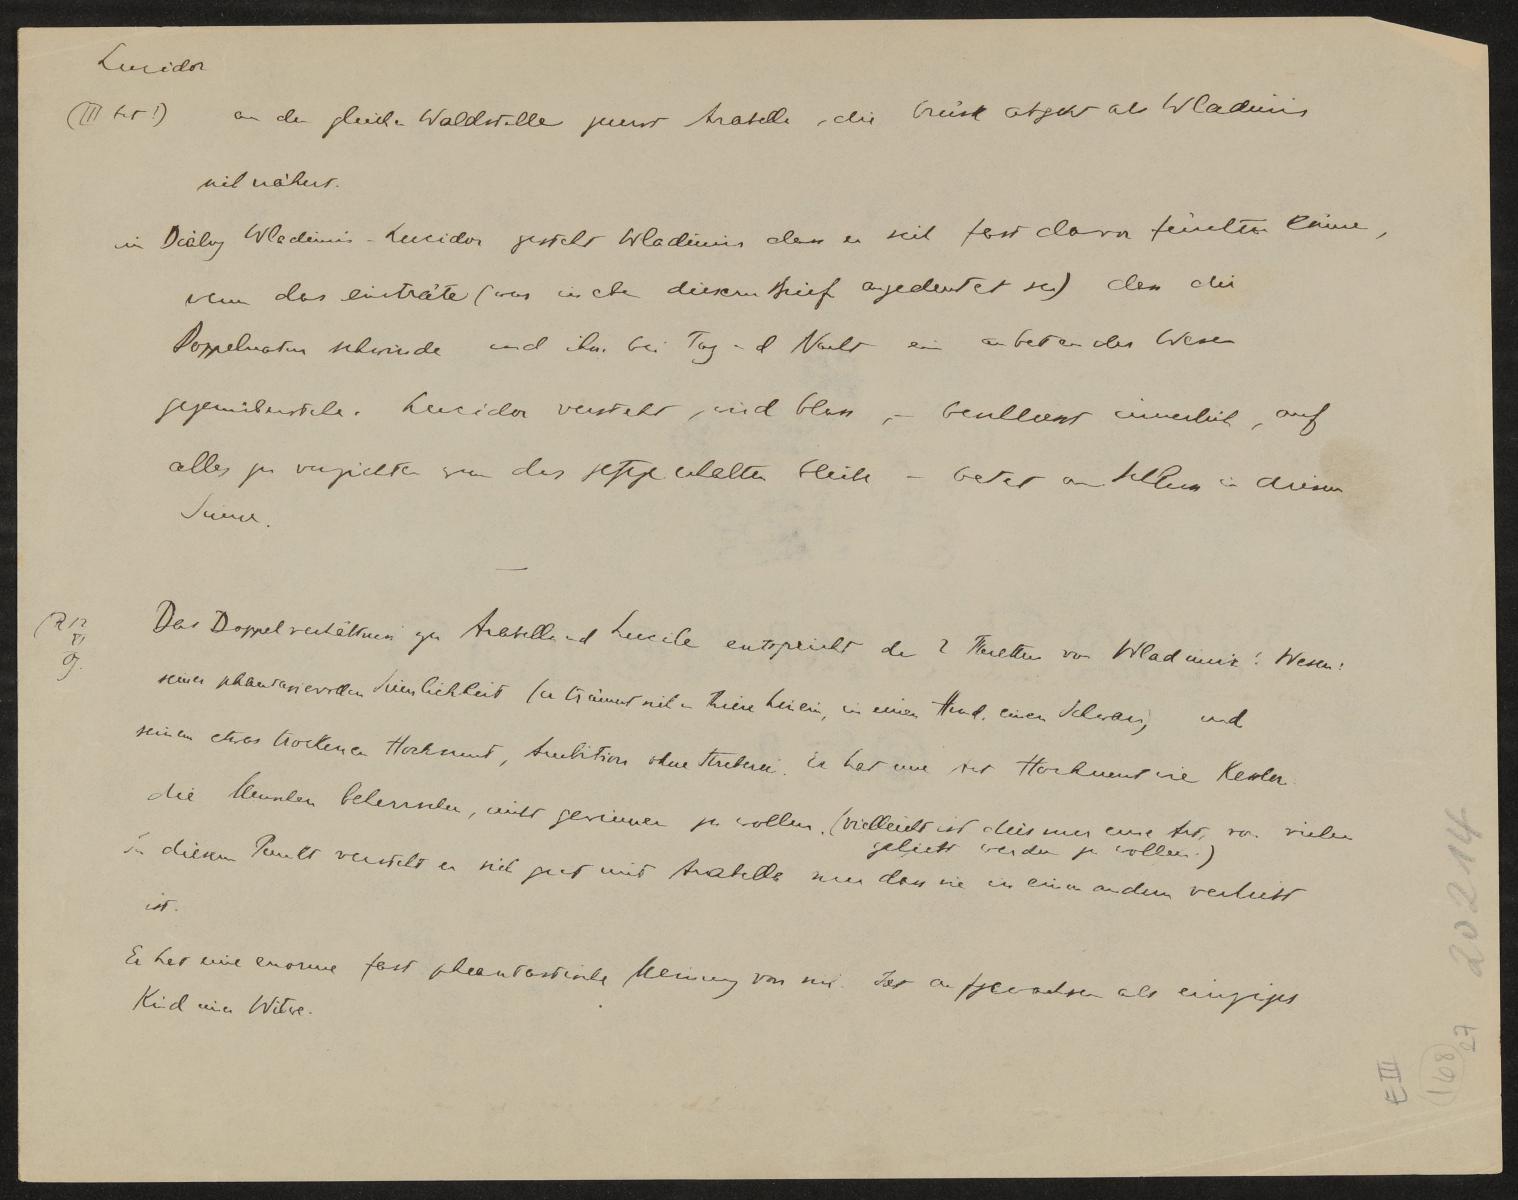 Lucidor
(III Act!) an der gleichen Waldstelle zuerst Arabella, die brüsk abgeht als Wladimir
sich nähert.
im Dialog Wladimir-Lucidor gesteht Wladimir dass er sich fast davor fürchten könne,
wenn das einträte (was in eben diesem Brief angedeutet sei) dass die
Doppelnatur schwinde und ihm bei Tag und Nacht ein anbetendes Wesen
gegenüberstehe. Lucidor versteht, wird blass, – beschliesst innerlich, auf
alles zu verzichten wenn das jetzige erhalten bleibe – betet am Schluss in diesem
Sinne.
(R 12
VI
09.
Das Doppelverhältnis zu Arabella und Lucile entspricht den 2 Facetten von Wladimirs Wesen:
seiner phantasievollen Sinnlichkeit (er träumt sich in Tiere hinein, in einen Hund, einen Schwan) und
seinem etwas trockenen Hochmut, Ambition ohne Streberei. Er hat eine Art Hochmut wie Kessler
die Menschen beherrschen, nicht gewinnen zu wollen. (vielleicht ist dies nur eine Art, von vielen
geliebt werden zu wollen.)
In diesem Punkt versteht er sich gut mit Arabella nur dass sie in einen andern verliebt
ist.
Er hat eine enorme fast phantastische Meinung von sich. Ist aufgewachsen als einziges
Kind einer Witwe.
E III
168
27
20214